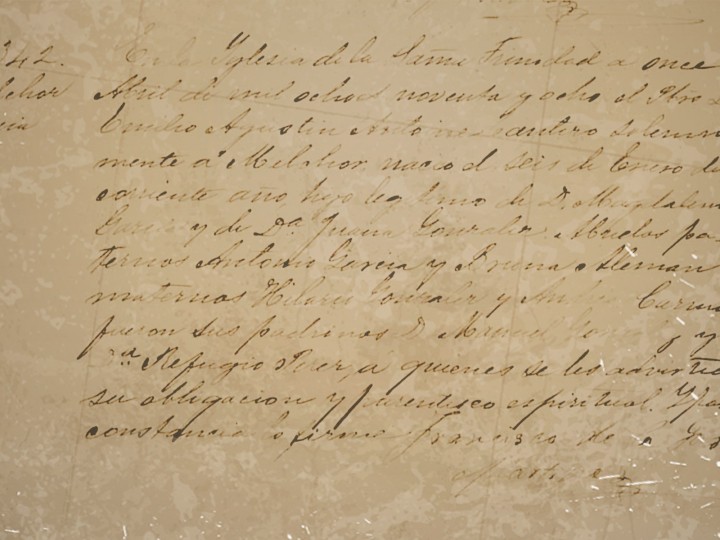 342.
En la Yglesia de la Sama Trinidad a once
Abril de mil ochos noventa y ocho el Pbro
Emilio Agustin Antoine santiro solemn
mente a Melchor, nacio el seis de Enero de
corriente año, hijo legitimo de D. Magdalen
Garcia y de Da Juana Gonzalez. Abuelos pa-
ternos Antonio Garcia y Bruna Aleman
maternos Hilario Gonzalez y
fueron sus padrinos D Manuel y
Da Refugio Perez, á quienes se les advirtió
su obligacion y parentesco espiritual. Y pa
constancia lo firmé Francisco de